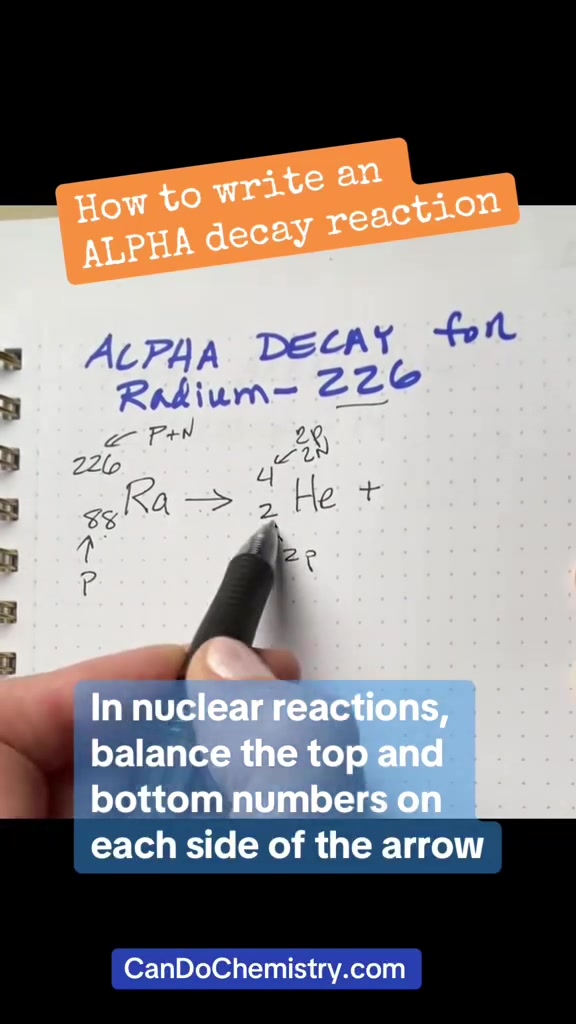 How to write an
ALPHA decay reaction
ALPHA DECAY for
Radium-226
226 ← P+N
88 Ra → 4 2 He +
2p
2N
↑
P
2p
In nuclear reactions,
balance the top and
bottom numbers on
each side of the arrow
CanDoChemistry.com